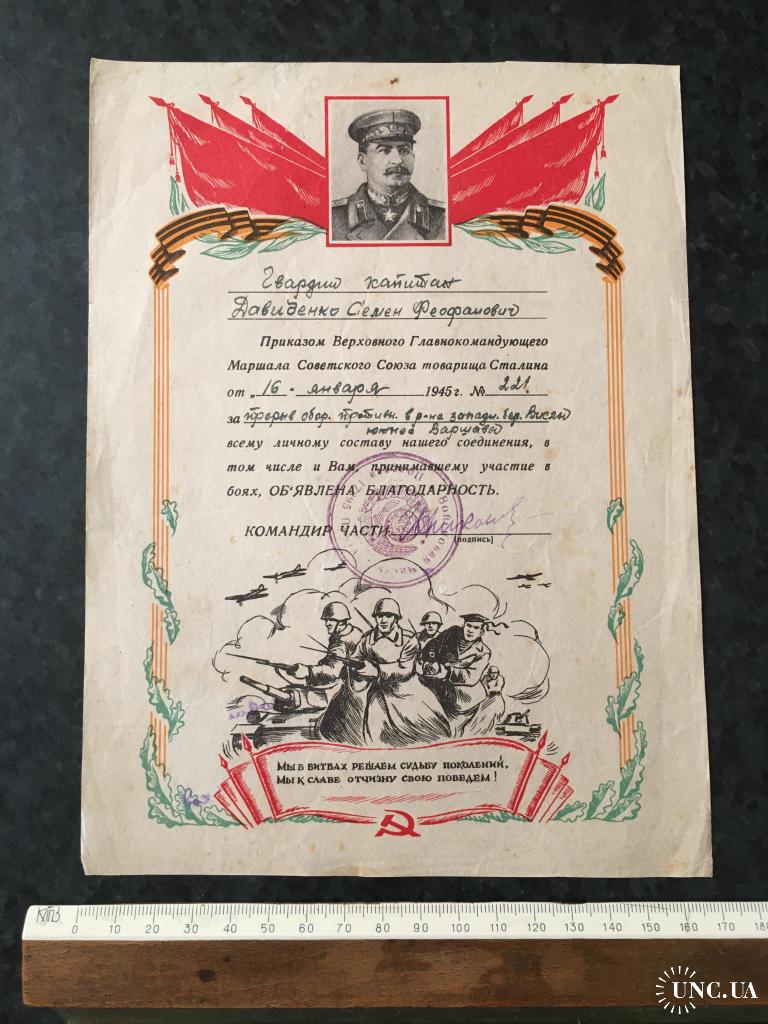 Гвардии капитан
Давиденко Семен Феофанович
Приказом Верховного Главнокомандующего
Маршала Советского Союза товарища Сталина
от „16" января 1945 г. № 221.
за прорыв обор. противн. в р-не западн. бер. Вислы
южнее Варшавы
всему личному составу нашего соединения, в
том числе и Вам, принимавшему участие в
боях, ОБ'ЯВЛЕНА БЛАГОДАРНОСТЬ.
КОМАНДИР ЧАСТИ
(подпись)
МЫ В БИТВАХ РЕШАЕМ СУДЬБУ ПОКОЛЕНИЙ,
МЫ К СЛАВЕ ОТЧИЗНУ СВОЮ ПОВЕДЕМ!
0 10 20 30 40 50 60 70 80 90 100 110 120 130 140 150 160 170 180
UNC.UA